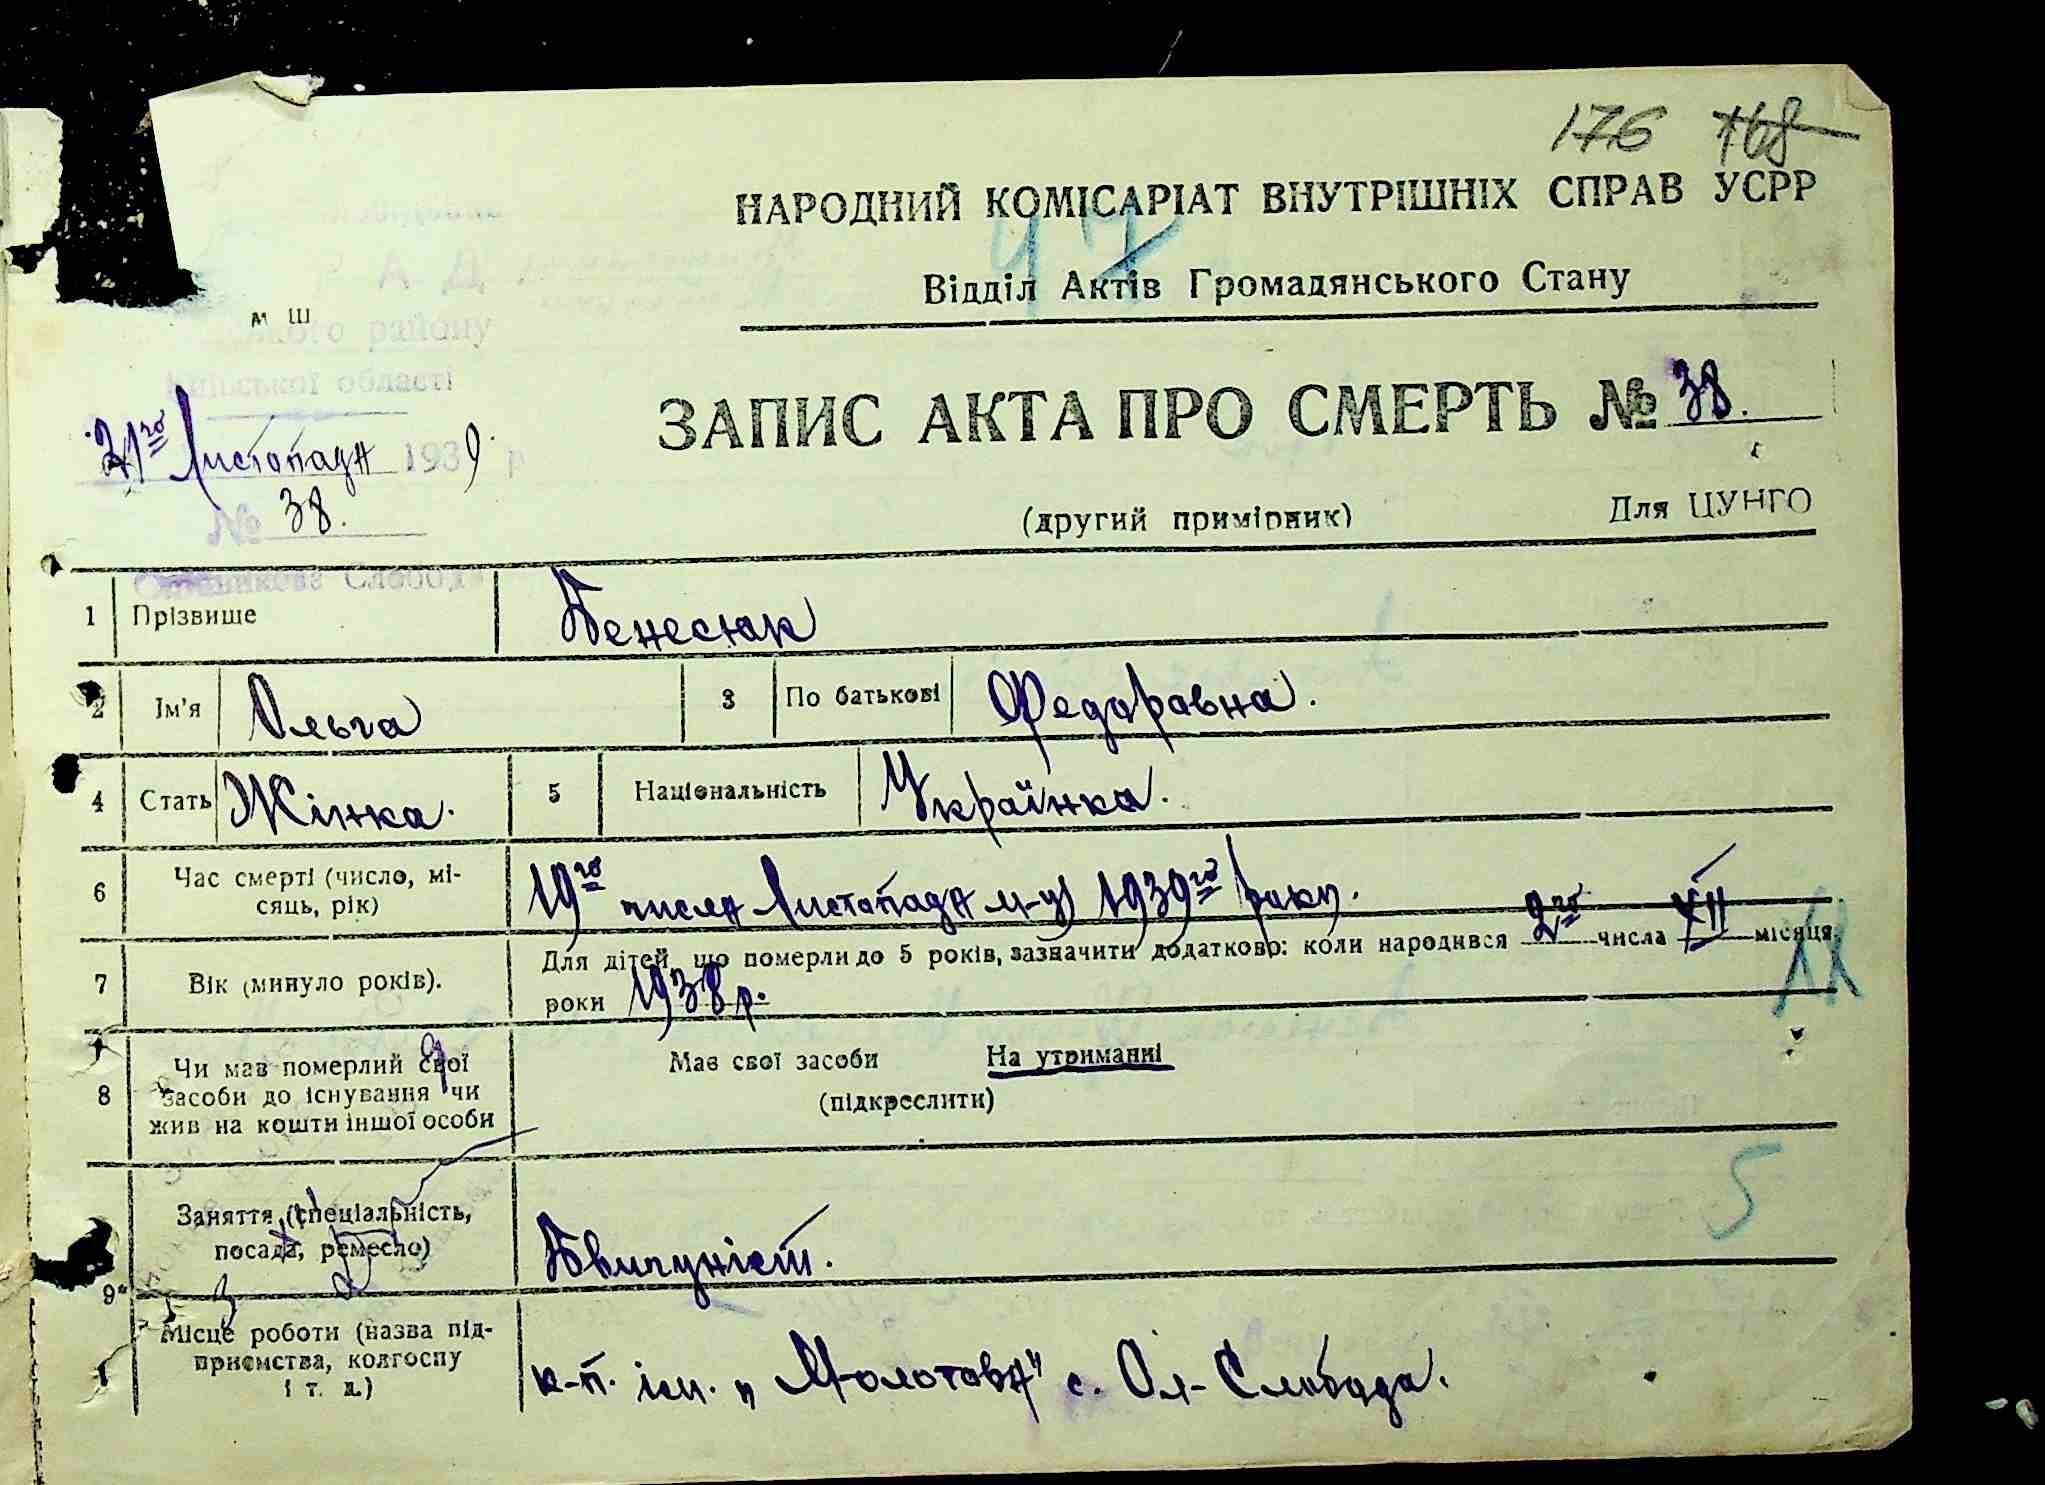 176 168
НАРОДНИЙ КОМІСАРІАТ ВНУТРІШНІХ СПРАВ УСРР
47
Відділ Актів Громадянського Стану
РАД
району
Київської області
ЗАПИС АКТА ПРО СМЕРТЬ № 38.
21го Листопада 1939 р
№ 38.
(другий примірник) Для ЦУНГО
Слобода
1 Прізвище Бенесюк
2 Ім'я Ольга 3 По батькові Федаравна.
4 Стать Жінка. 5 Національність Українка.
6 Час смерті (число, мі-
сяць, рік) 19го числа Листопада м-ця 1939го року.
7 Вік (минуло років). Для дітей, що померли до 5 років, зазначити додатково: коли народився 2го числа XII місяця,
роки 1938 р.
8 Чи мав померлий свої
засоби до існування чи
жив на кошти іншої особи
Мав свої засоби На утриманні
(підкреслити)
5
9
Заняття (спеціальність,
посада, ремесло)
Місце роботи (назва під-
приємства, колгоспу
і т. д.)
к-п. ім. „Молотова" с. Ол-Слобода.